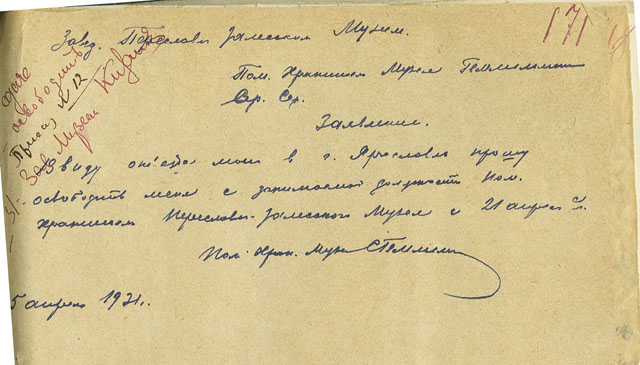 Завед. Переслав. Залесским Музеем.
Пом. Хранителя Музея
Заявление.
Ввиду отъезда моего в г. Ярославль прошу
освободить меня с занимаемой должности пом.
хранителя Переслав-Залесского Музея с 21 апреля с/г.
Пом. Хран. Музея
5 апреля 1931г.
освободить
Приказ № 12
Зав. Музеем
171